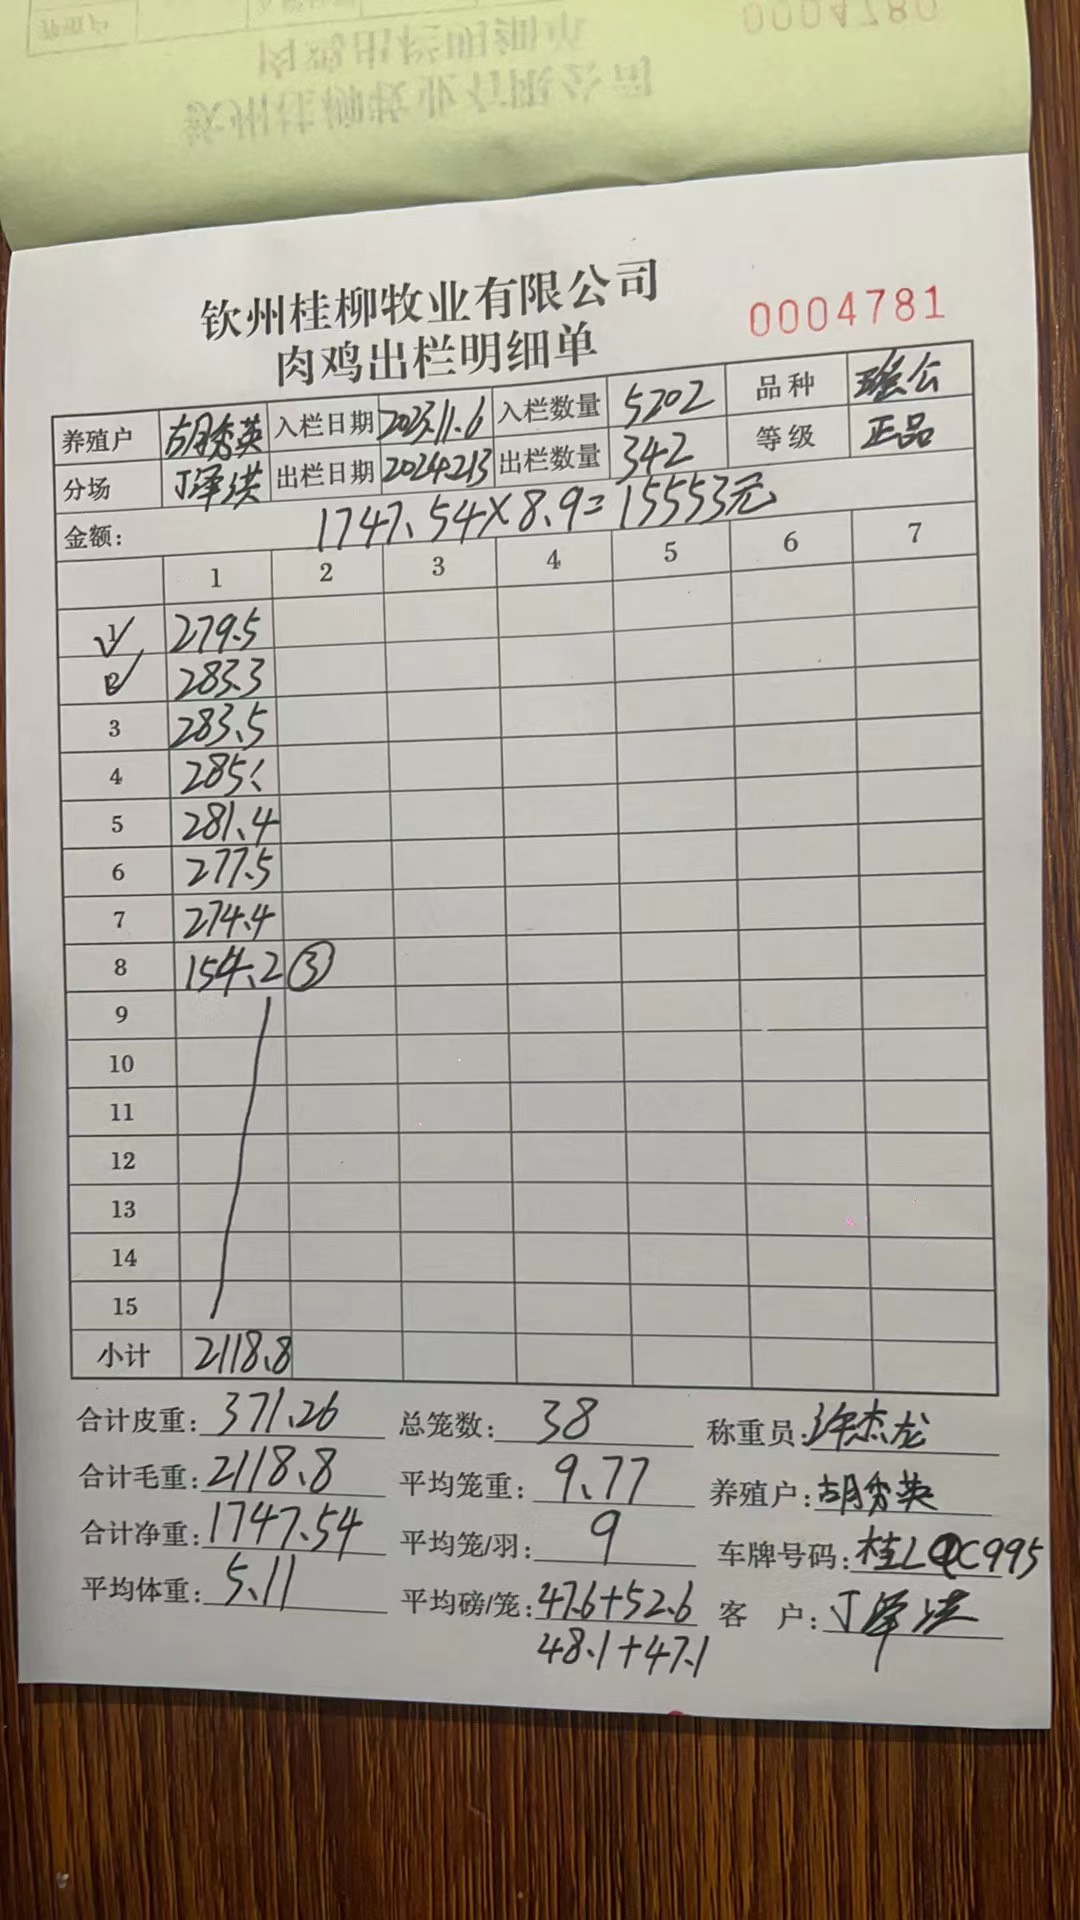 钦州桂柳牧业有限公司
肉鸡出栏明细单
0004781
养殖户 胡秀英 入栏日期 2023.11.6 入栏数量 5202 品种 瑶公
分场 丁泽洪 出栏日期 2024.2.13 出栏数量 342 等级 正品
金额: 1747.54×8.9=15553元
1 2 3 4 5 6 7
1 279.5
2 283.3
3 283.5
4 285
5 281.4
6 277.5
7 274.4
8 154.2 ③
9
10
11
12
13
14
15
小计 2118.8
合计皮重: 371.26 总笼数: 38 称重员: 许杰龙
合计毛重: 2118.8 平均笼重: 9.77 养殖户: 胡秀英
合计净重: 1747.54 平均笼/羽: 9 车牌号码: 桂L C995
平均体重: 5.11 平均磅/笼: 47.6+52.6 客户: 丁泽洪
48.1+47.1